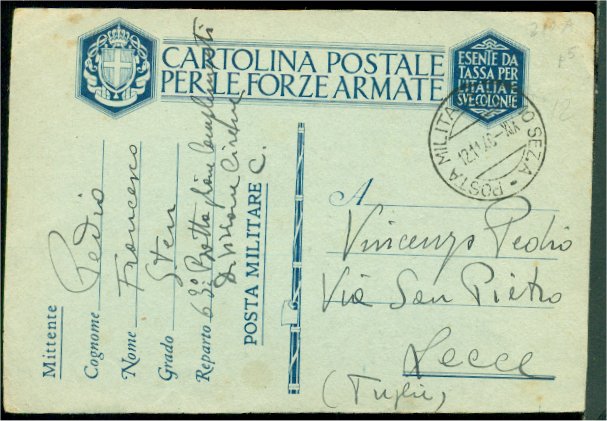 CARTOLINA POSTALE
PER LE FORZE ARMATE
ESENTE DA
TASSA PER
L'ITALIA E
SVE COLONIE
POSTA MILITA
O SEZ.A
12.11.40-XIX
12
Mittente
Cognome Pedio
Nome Francesco
Grado Sten
Reparto 63° Battaglione Complementi
Divisione Cirene
POSTA MILITARE C.
A
Vincenzo Pedio
Via San Pietro
Lecce